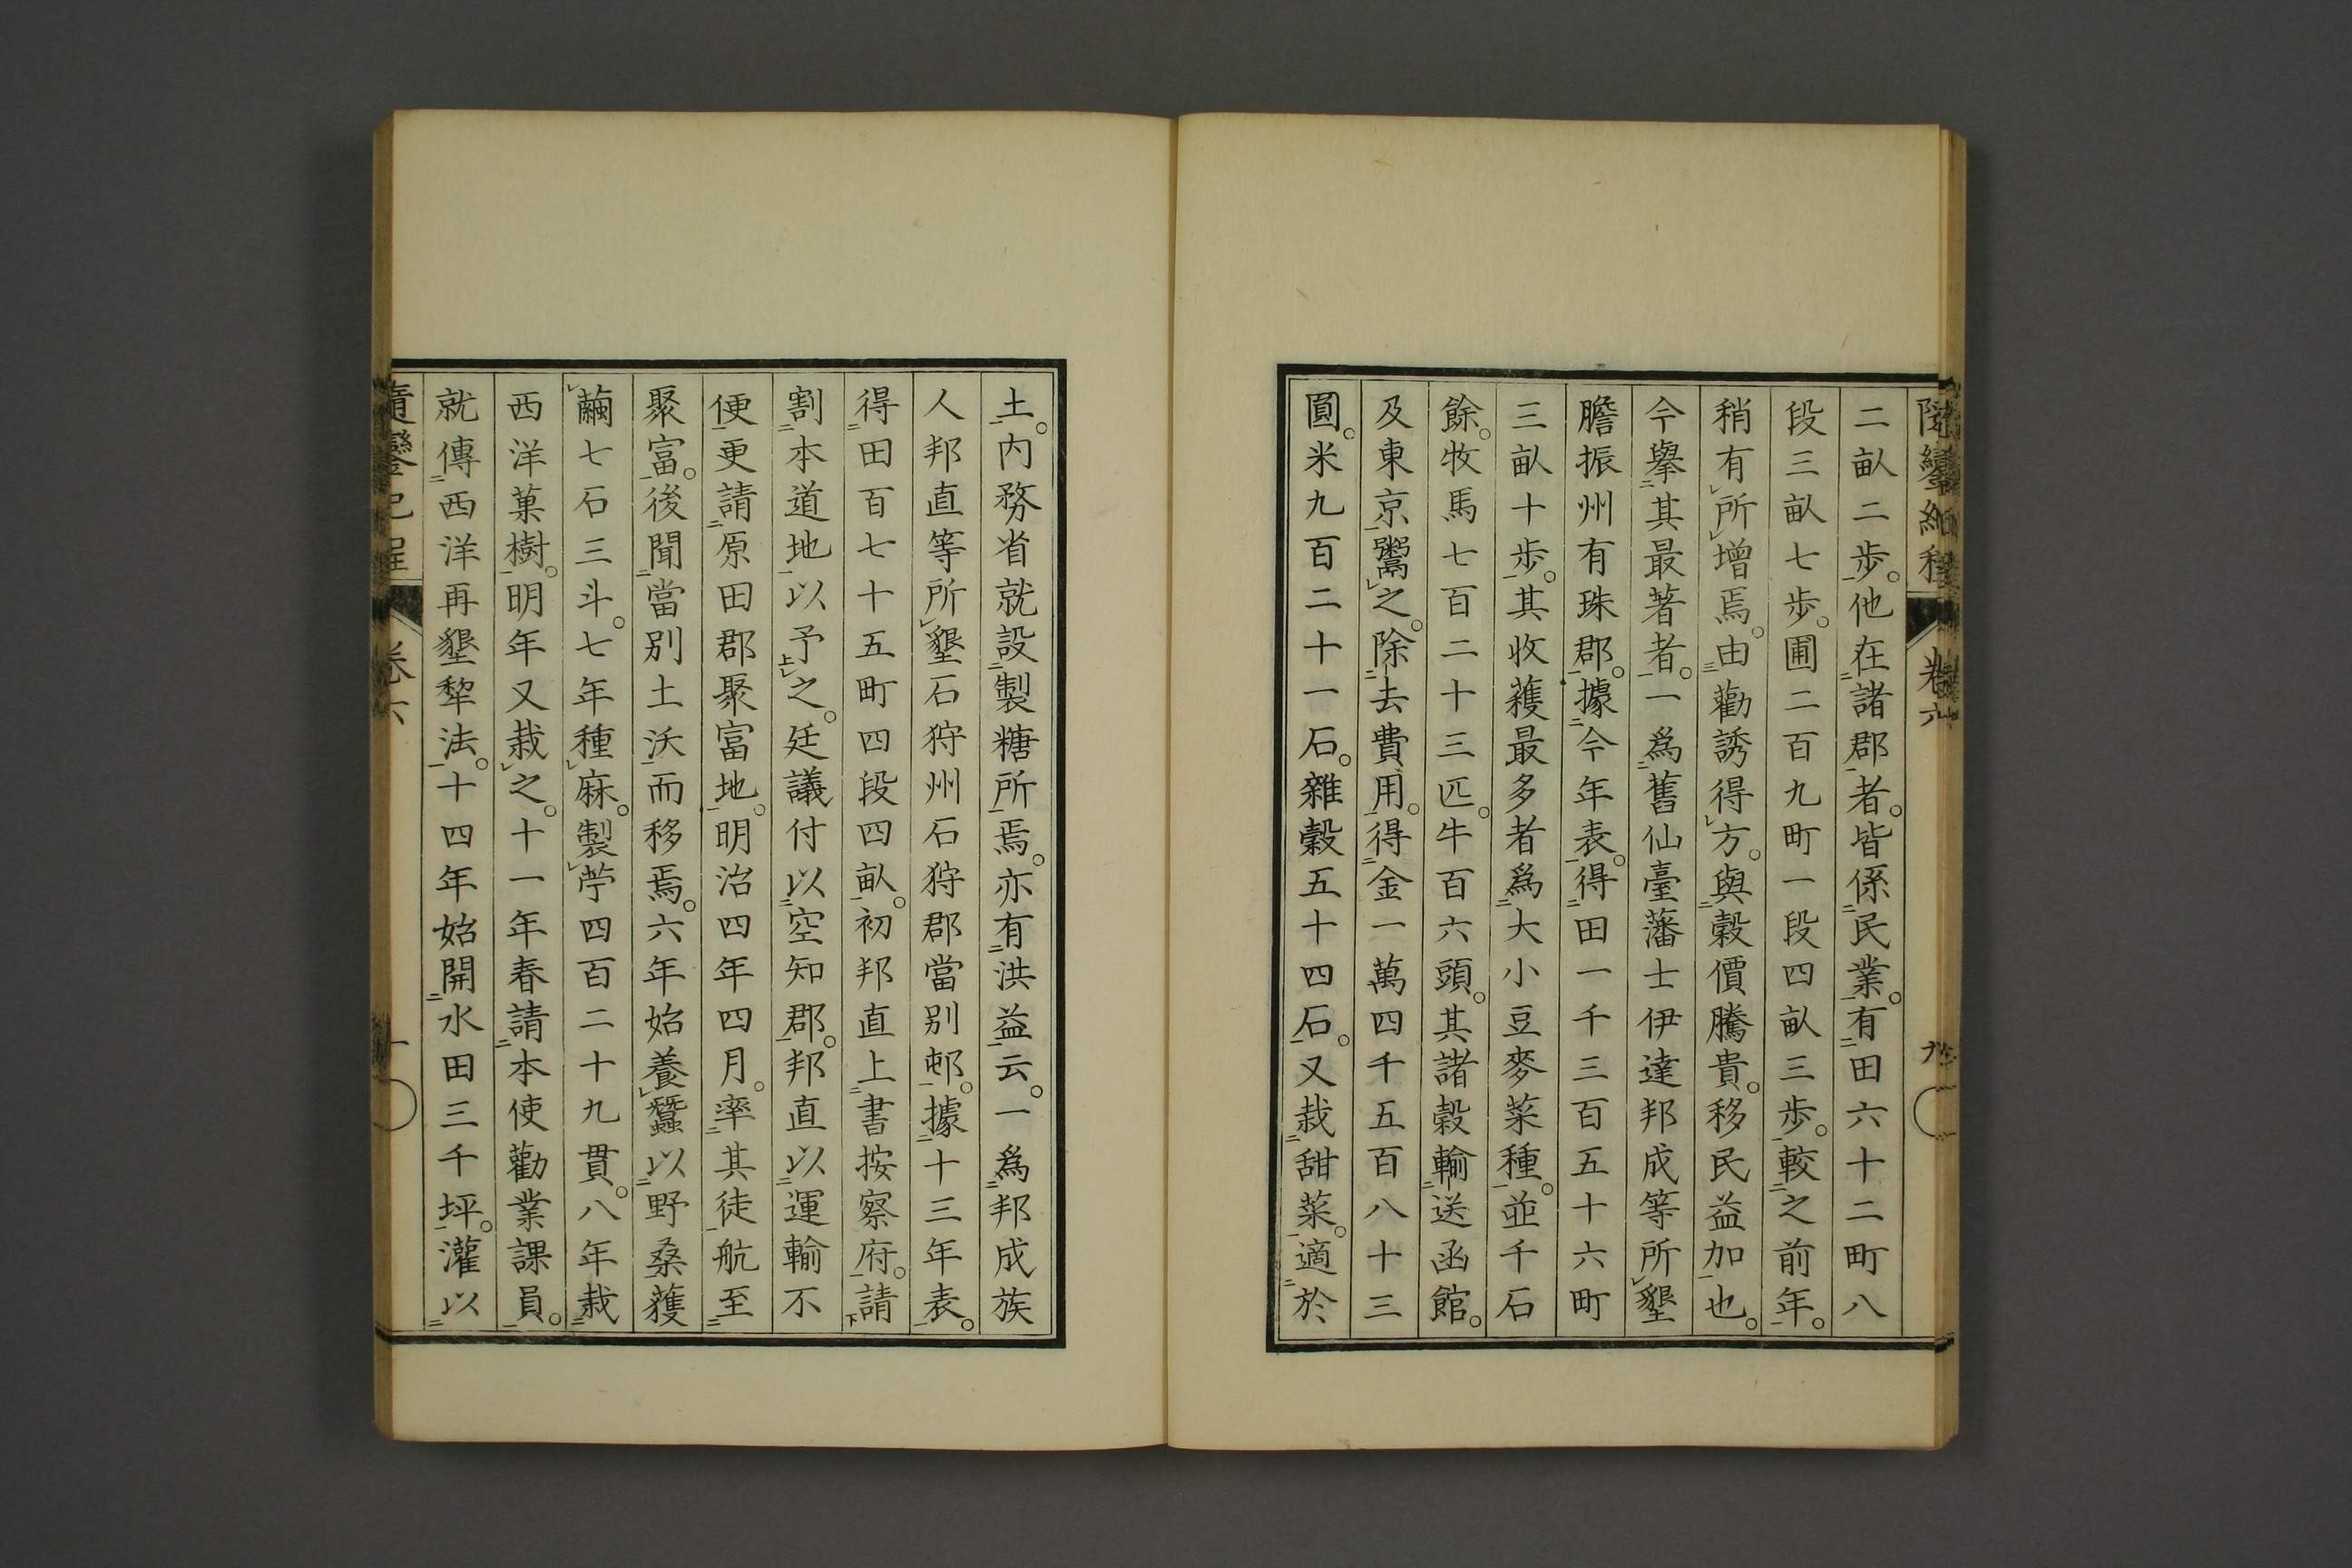 隨鑾紀程 卷六 九
二畝二歩。他在諸郡者。皆係民業。有田六十二町八
段三畝七歩。圃二百九町一段四畝三歩。較之前年。
稍有所增焉。由勸誘得方。與穀價騰貴。移民益加也。
今擧其最著者。一爲舊仙臺藩士伊達邦成等所墾
膽振州有珠郡。據今年表。得田一千三百五十六町
三畝十歩。其收穫最多者爲大小豆麥菜種。並千石
餘。牧馬七百二十三匹。牛百六頭。其諸穀輸送函館。
及東京鬻之。除去費用。得金一萬四千五百八十三
圓。米九百二十一石。雜穀五十四石。又栽甜菜。適於
土。内務省就設製糖所焉。亦有洪益云。一爲邦成族
人邦直等所墾石狩州石狩郡當別邨。據十三年表。
得田百七十五町四段四畝。初邦直上書按察府。請
割本道地以予之。廷議付以空知郡。邦直以運輸不
便更請原田郡聚富地。明治四年四月。率其徒航至
聚富。後聞當別土沃而移焉。六年始養蠶以野桑穫
繭七石三斗。七年種麻。製苧四百二十九貫。八年栽
西洋菓樹。明年又栽之。十一年春請本使勸業課員。
就傳西洋再墾犂法。十四年始開水田三千坪。灌以
隨鑾紀程 卷六 十